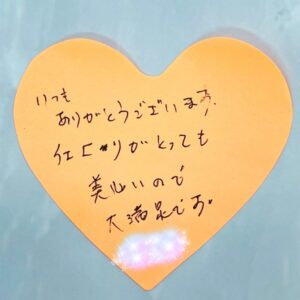 いつも
ありがとうございます。
仕上りがとっても
美しいので
大満足です。